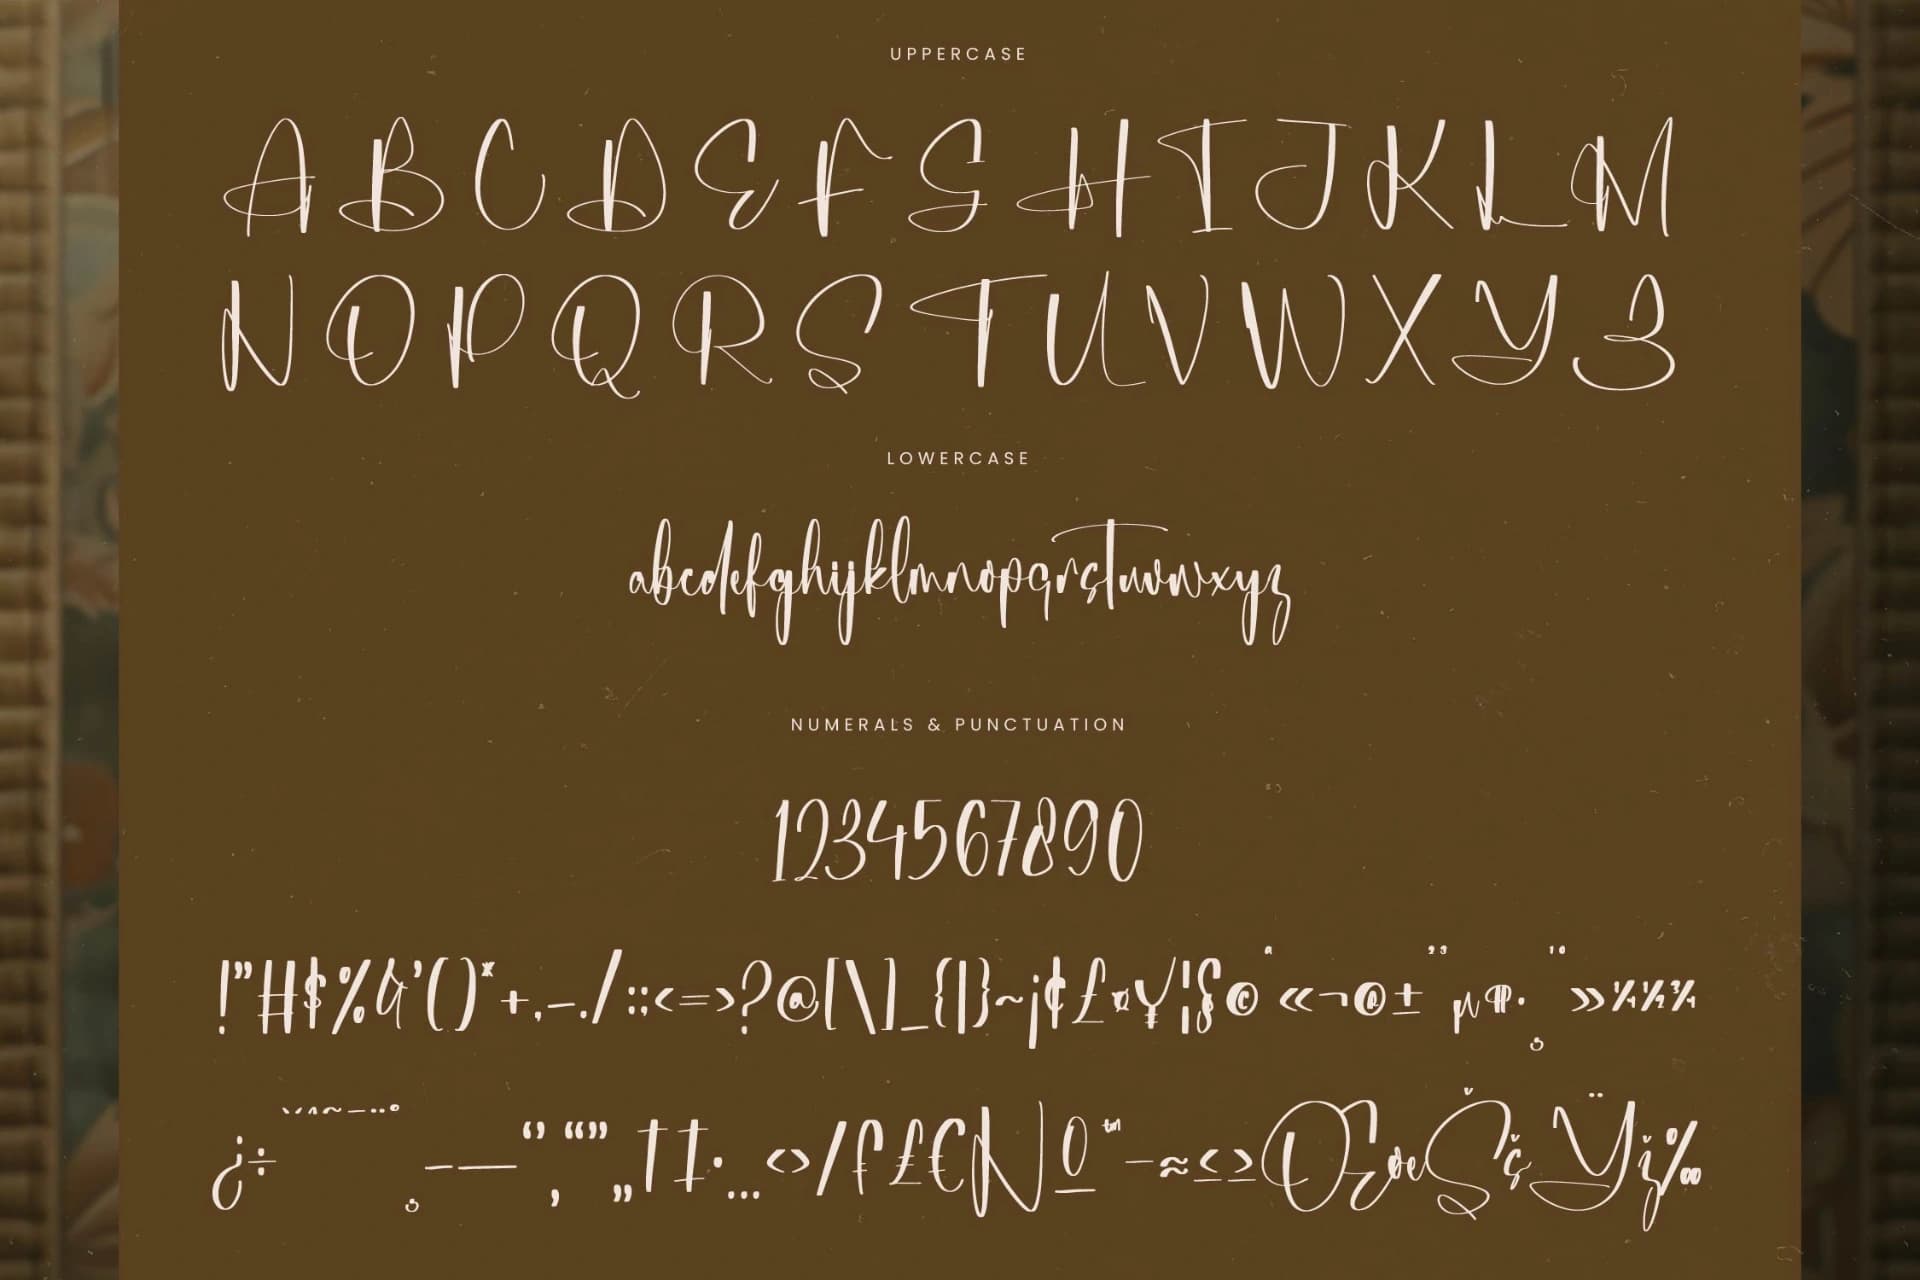 UPPERCASE
A B C D E F G H I J K L M
N O P Q R S T U V W X Y Z
LOWERCASE
abcdefghijklmnopqrstuvwxyz
NUMERALS & PUNCTUATION
1234567890
!"#$%&'()*+,-./:;<=>?@[\]_{|}~¡¢£¤¥¦§©ª«¬®±²³µ¶·¸¹º»¼½¾
¿÷ˇ˘ˆ˜¯¨˚¸–—‘’‚“”„†‡·…‹›⁄ƒ₤€№™−≈≤≥ŒœŠšŸž‰